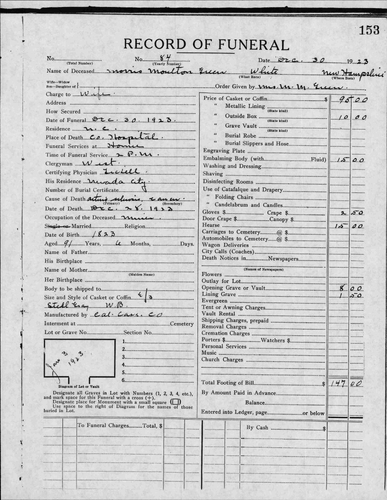 153
RECORD OF FUNERAL
No. (Total Number) No. 84 (Yearly Number) Date Dec. 30 1923
Name of Deceased Morris Moulton Green White (What Race) New Hampshire (Where Born)
Wife—Widow Son—Daughter of Order Given by Mrs. M. M. Green
Charge to Wife
Address
How Secured
Date of Funeral Dec. 30 1923
Residence N. C.
Place of Death Co. Hospital
Funeral Services at Home
Time of Funeral Service 2 P.M.
Clergyman West
Certifying Physician
His Residence Nevada City
Number of Burial Certificate
Cause of Death (Primary) (Secondary)
Date of Death Dec. 28 1923
Occupation of the Deceased Miner
Single or Married Religion
Date of Birth 1832
Aged 91 Years, 4 Months, Days
Name of Father
His Birthplace
Name of Mother (Maiden Name)
Her Birthplace
Body to be shipped to
Size and Style of Casket or Coffin 6/3
W. B.
Manufactured by Cal. Cas. Co
Interment at Cemetery
Lot or Grave No. Section No.
1.
2.
3.
4.
5.
6.
1923
Diagram of Lot or Vault
Designate all Graves in Lot with Numbers (1, 2, 3, 4, etc.), and mark space for this Funeral with a cross (+).
Designate place for Monument with a small square
Use space to the right of Diagram for the names of those buried in Lot.
Price of Casket or Coffin $ 95 00
" Metallic Lining (State kind)
" Outside Box (State kind) 10 00
" Grave Vault (State kind)
" Burial Robe (State kind)
" Burial Slippers and Hour
Engraving Plate
Embalming Body (with Fluid) 15 00
Washing and Dressing
Shaving
Disinfecting Rooms
Use of Catafalque and Drapery
" Folding Chairs
" Candelabrum and Candles
Gloves $ Crape $ 2 50
Door Crape
Hearse 15 00
Carriages to Cemetery @ $
Automobiles to Cemetery @ $
Wagon Deliveries
City Calls (Coaches)
Death Notices in Newspapers
(Names of Newspapers)
Flowers
Outlay for Lot
Opening Grave or Vault 8 00
Lining Grave 1 50
Evergreen
Tent or Awning Charges
Vault Rental
Shipping Charges, prepaid
Removal Charges
Cremation Charges
Porters $ Watchers $
Personal Services
Music
Church Charges
Total Footing of Bill $ 147 00
By Amount Paid in Advance
Balance
Entered into Ledger, page or below
To Funeral Charges, Total, $ By Cash $